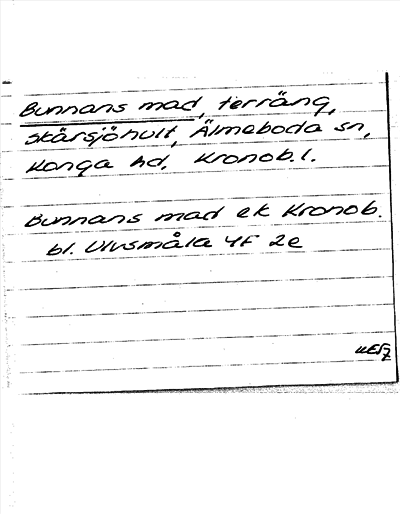 Bunnans mad, terräng,
Skärsjöhult, Älmeboda sn,
Konga hd. Kronob.l.
Bunnans mad ek Kronob.
bl. Ulvsmåla 4F 2e